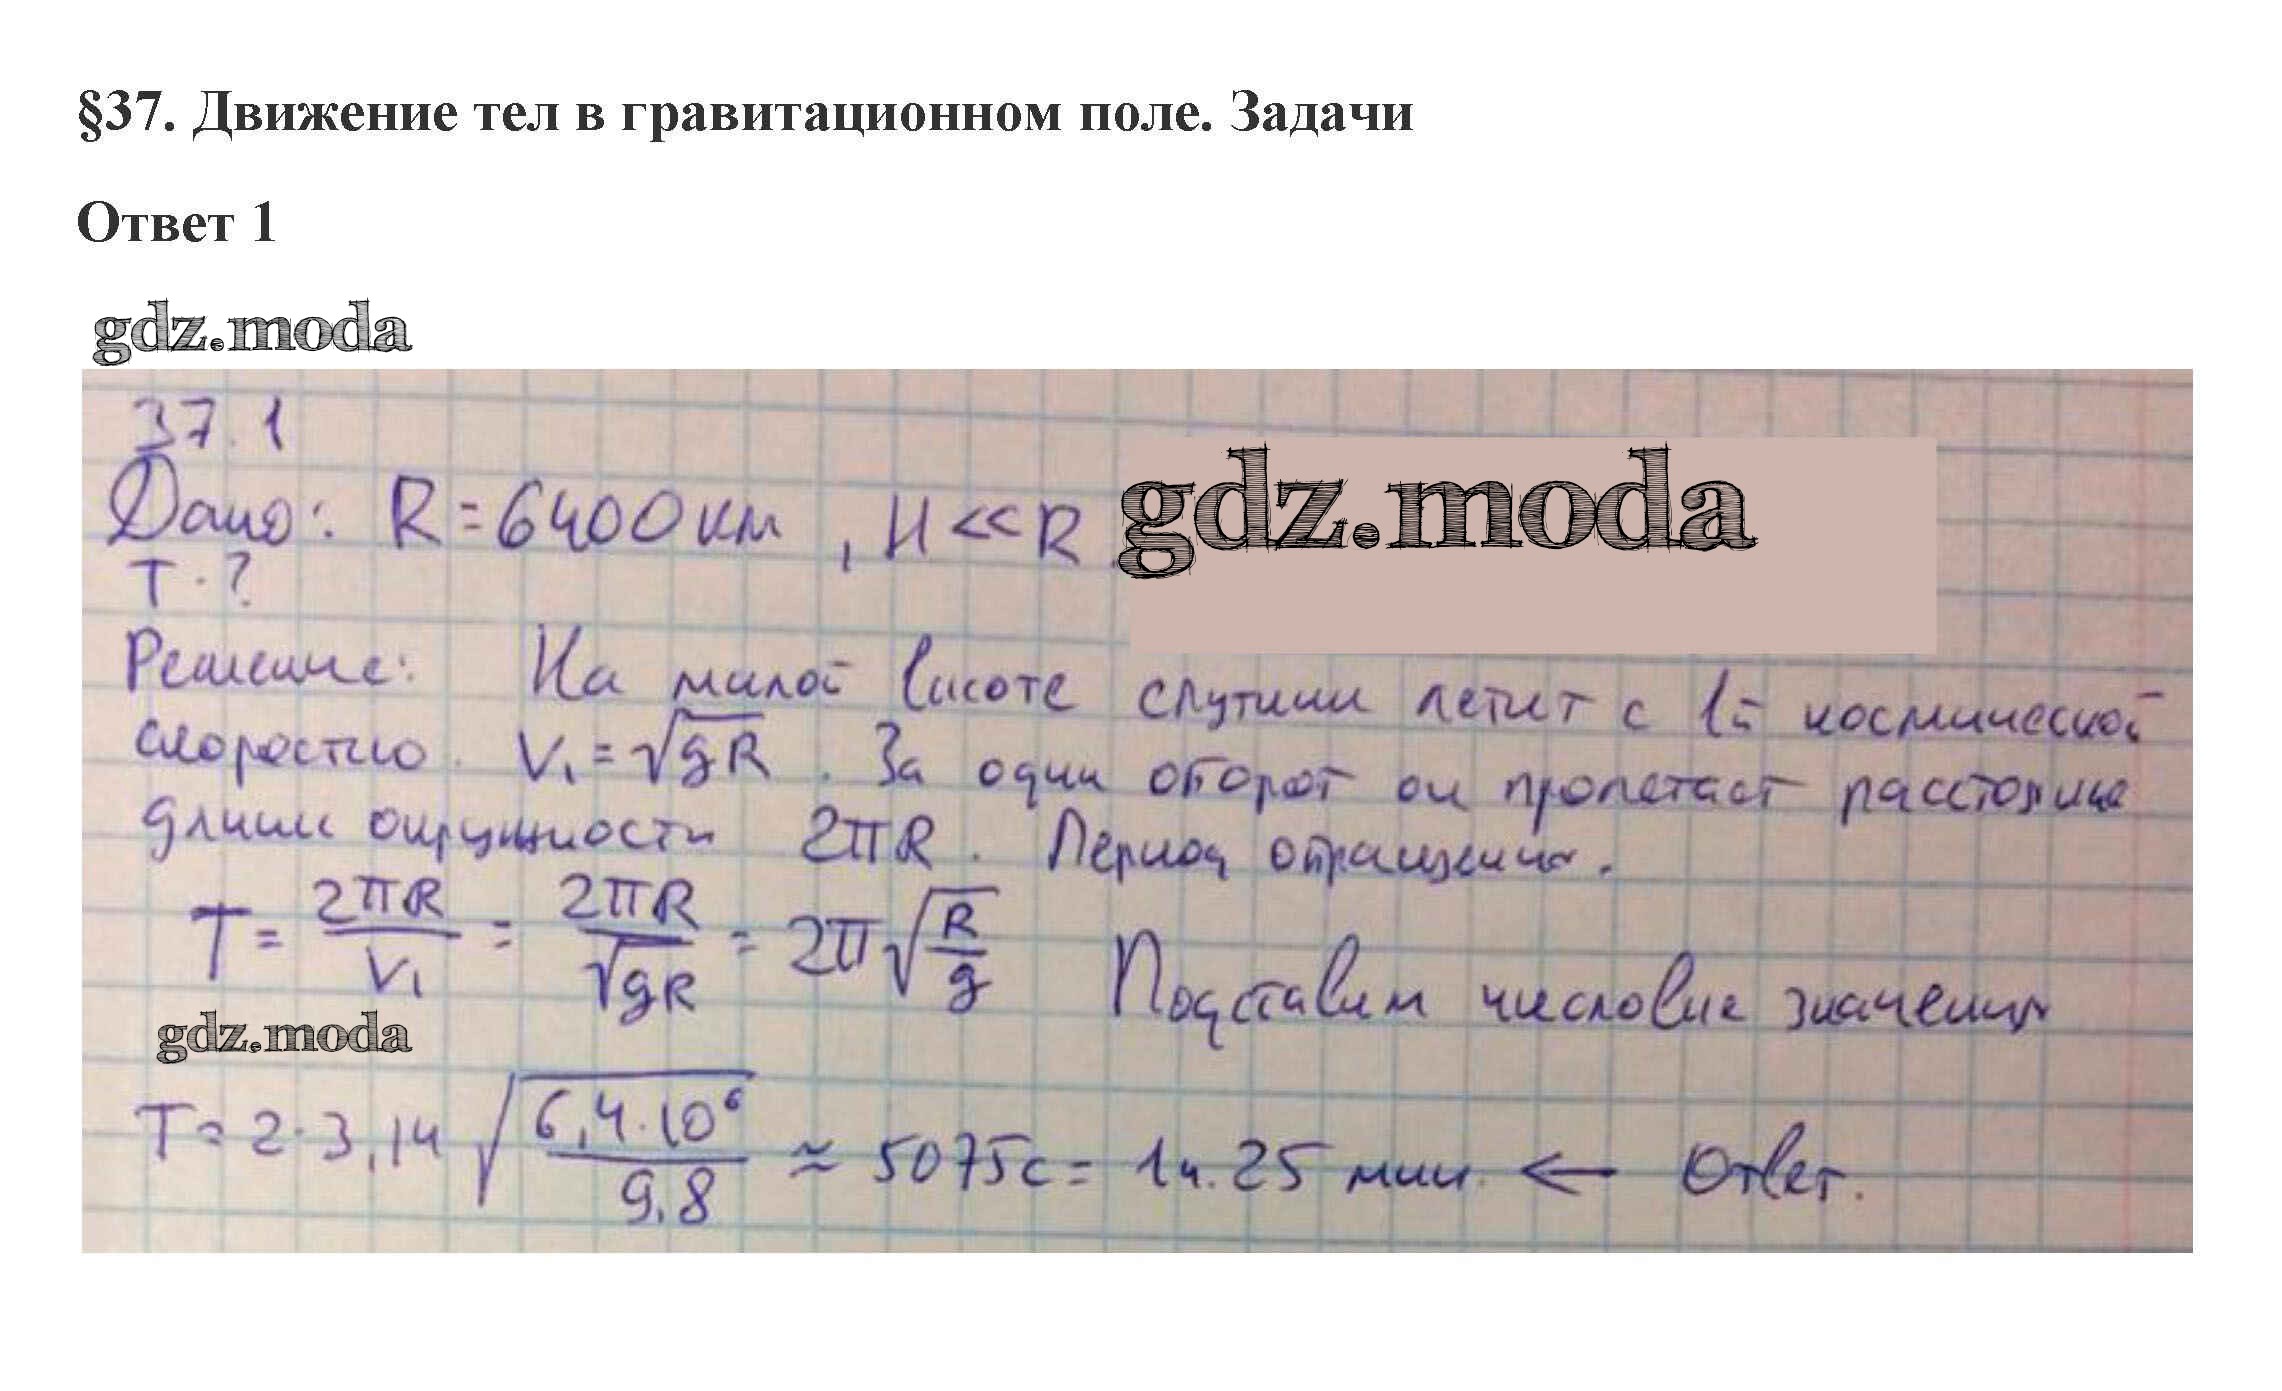 §37. Движение тел в гравитационном поле. Задачи
Ответ 1
gdz.moda
37.1
Дано: R = 6400 км, H << R gdz.moda
T - ?
Решение: На малой высоте спутник летит с 1й космической
скоростью. V₁ = √gR. За один оборот он пролетает расстояние
длины окружности 2πR. Период обращения.
T = 2πR/V₁ = 2πR/√gR = 2π√(R/g) Подставим числовые значения
gdz.moda
T = 2·3,14 √(6,4·10⁶/9,8) ≈ 5075с = 1ч. 25 мин. ← Ответ.